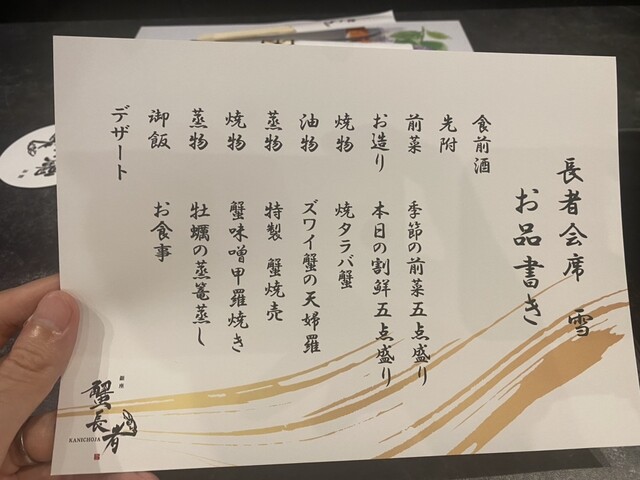 長者会席 雪
お品書き
食前酒
先附
前菜 季節の前菜五点盛り
お造り 本日の割鮮五点盛り
焼物 焼タラバ蟹
油物 ズワイ蟹の天婦羅
蒸物 特製 蟹焼売
焼物 蟹味噌甲羅焼き
蒸物 牡蠣の蒸篭蒸し
御飯 お食事
デザート
銀座
蟹長者
KANICHOJA